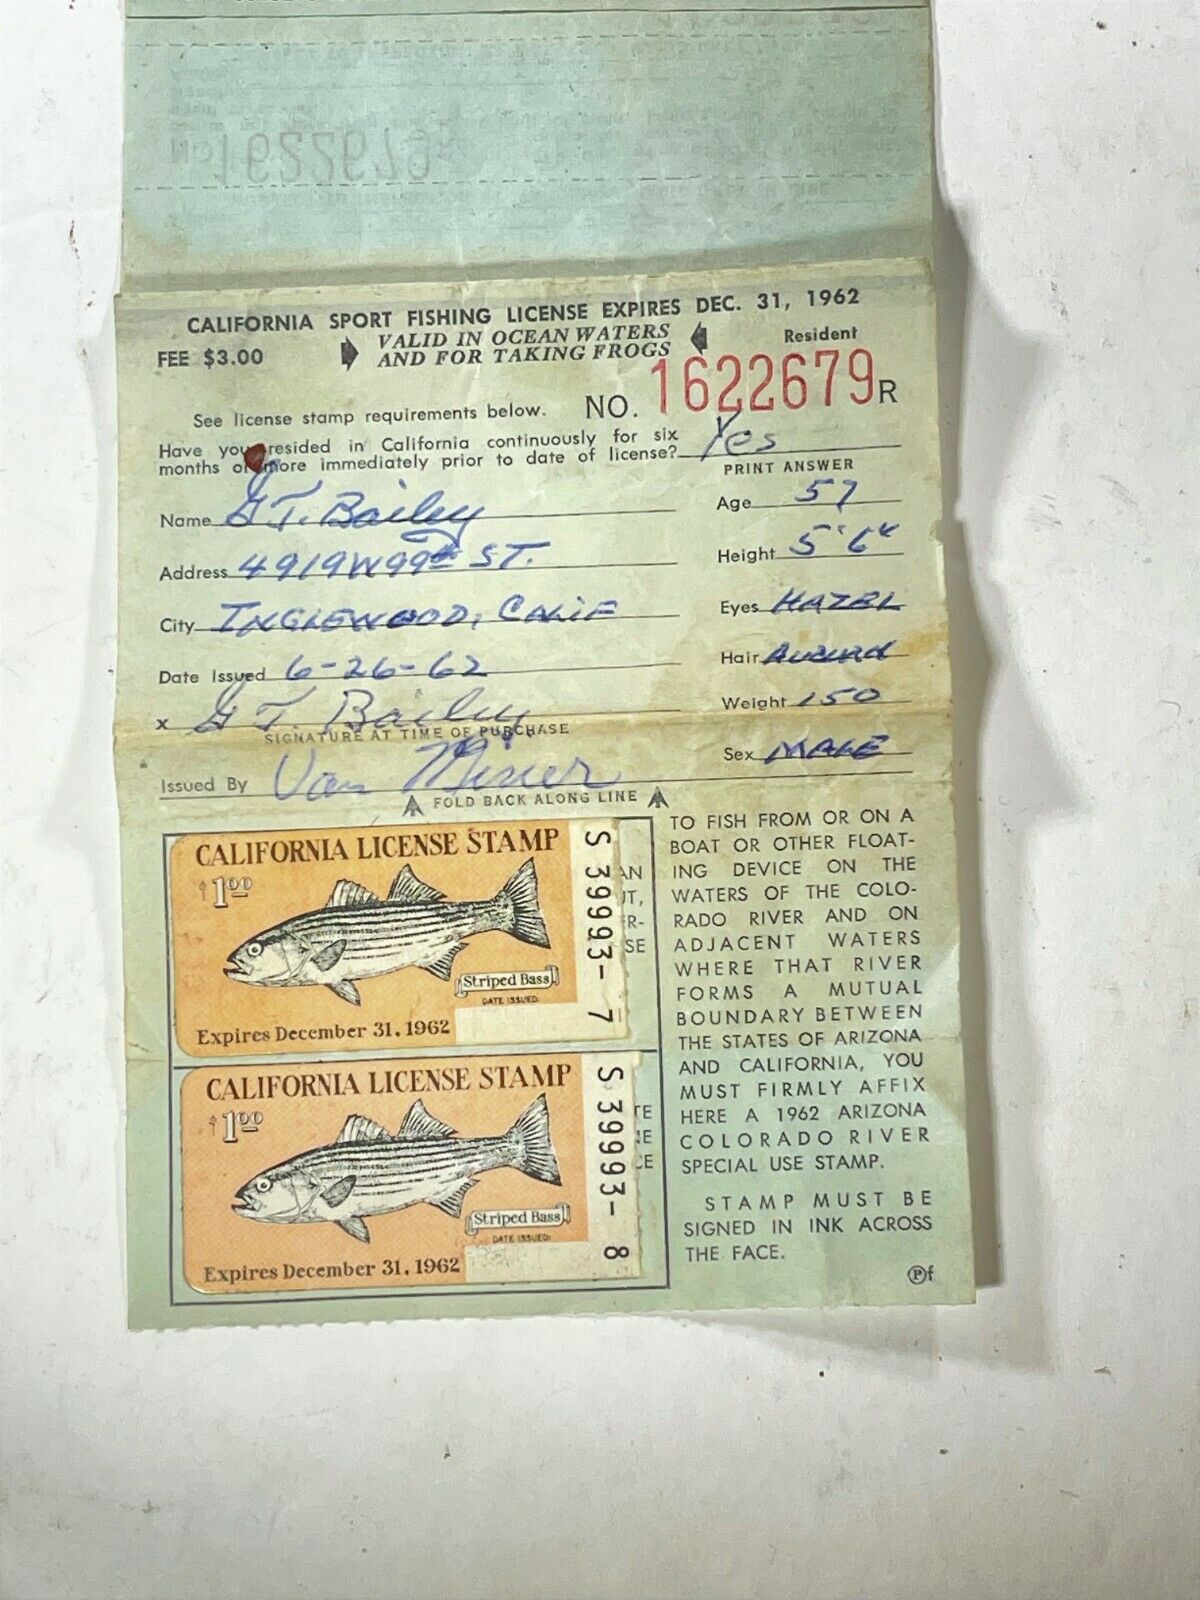 CALIFORNIA SPORT FISHING LICENSE EXPIRES DEC. 31, 1962
FEE $3.00
VALID IN OCEAN WATERS
AND FOR TAKING FROGS
Resident
See license stamp requirements below.
NO. 1622679 R
Have you resided in California continuously for six
months or more immediately prior to date of license? Yes
PRINT ANSWER
Name G T. Bailey
Age 57
Address 4919 W 99th ST.
Height 5'6"
City INGLEWOOD, CALIF
Eyes HAZEL
Date Issued 6-26-62
Hair
x G T. Bailey
Weight 150
SIGNATURE AT TIME OF PURCHASE
Sex MALE
Issued By Van
FOLD BACK ALONG LINE
CALIFORNIA LICENSE STAMP
$1.00
Striped Bass
DATE ISSUED:
Expires December 31, 1962
S 39993- 7
AN
UT,
ER-
SE
CALIFORNIA LICENSE STAMP
$1.00
Striped Bass
DATE ISSUED:
Expires December 31, 1962
S 39993- 8
TE
NE
CE
TO FISH FROM OR ON A
BOAT OR OTHER FLOAT-
ING DEVICE ON THE
WATERS OF THE COLO-
RADO RIVER AND ON
ADJACENT WATERS
WHERE THAT RIVER
FORMS A MUTUAL
BOUNDARY BETWEEN
THE STATES OF ARIZONA
AND CALIFORNIA, YOU
MUST FIRMLY AFFIX
HERE A 1962 ARIZONA
COLORADO RIVER
SPECIAL USE STAMP.
STAMP MUST BE
SIGNED IN INK ACROSS
THE FACE.
Ⓟf